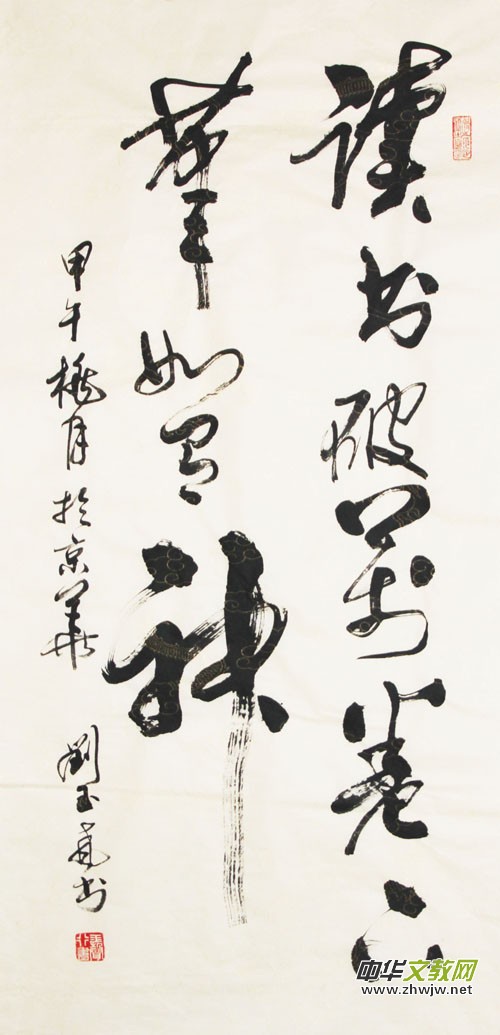 讀書破萬卷下
筆如有神
甲午月於京華
劉玉書
中华文教网
www.zhwjw.net